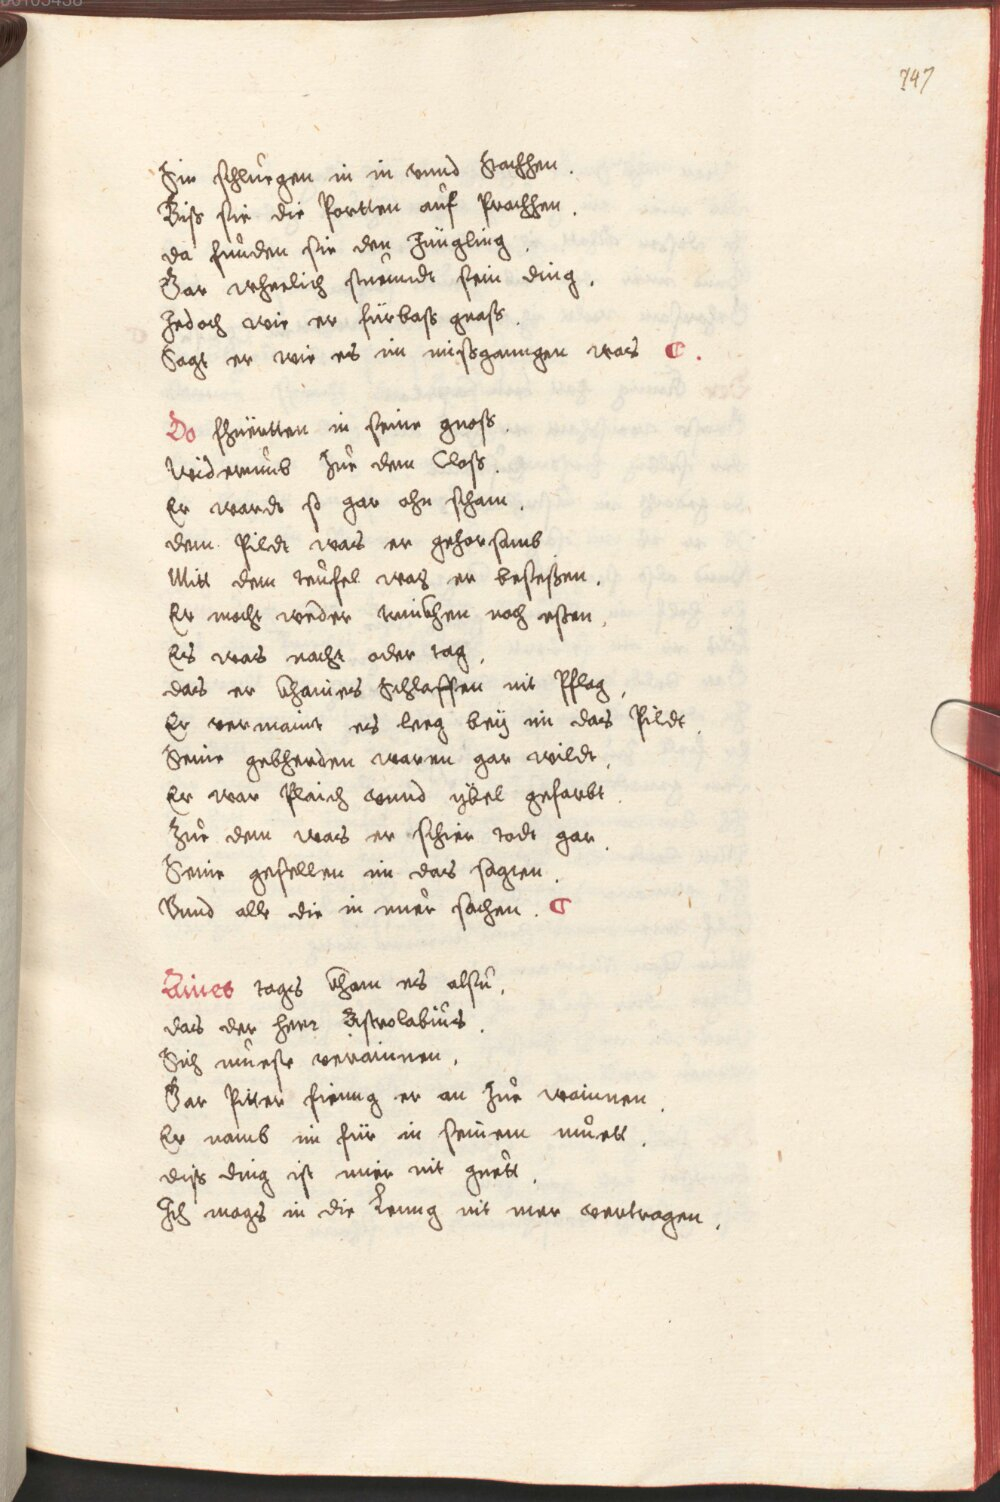 747
Sie schluegen in in vnnd stachhen.
Biß sie die Portten auf Prachhen.
da funden sie den Jüngling.
Gar wherlich stuenndt sein ding.
Jedoch wie er fürbaß graß.
Sagt er wie es im mißganngen was.
Do fhuertten in seine gnoß.
Widerumb Zue dem Closß.
Er wardt so gar ohn scham.
dem Pildt was er gehorsamb
Mitt dem teufel was er beseßen.
Er mocht weder trinkhen noch eßen.
Es was nacht oder tag.
das er khaines schlaffen nit Pflag.
Er vermaint es leeg beÿ im das Pildt.
Seine gebherden waren gar wildt.
Er war Plaich vnnd ybel gefarbt.
Zue dem was er schier todt gar.
Seine gesellen im das sagten.
Vnnd alle die in nuer sachen.
Aines tags kham es alsu.
das der herr Astrolabius.
Sich mueste verainnen.
Gar Pitter fienng er an Zue wainnen.
Er namb im für in seinem muett.
diß ding ist mier nit guett.
Ich mags in die lenng nit mer vertragen.